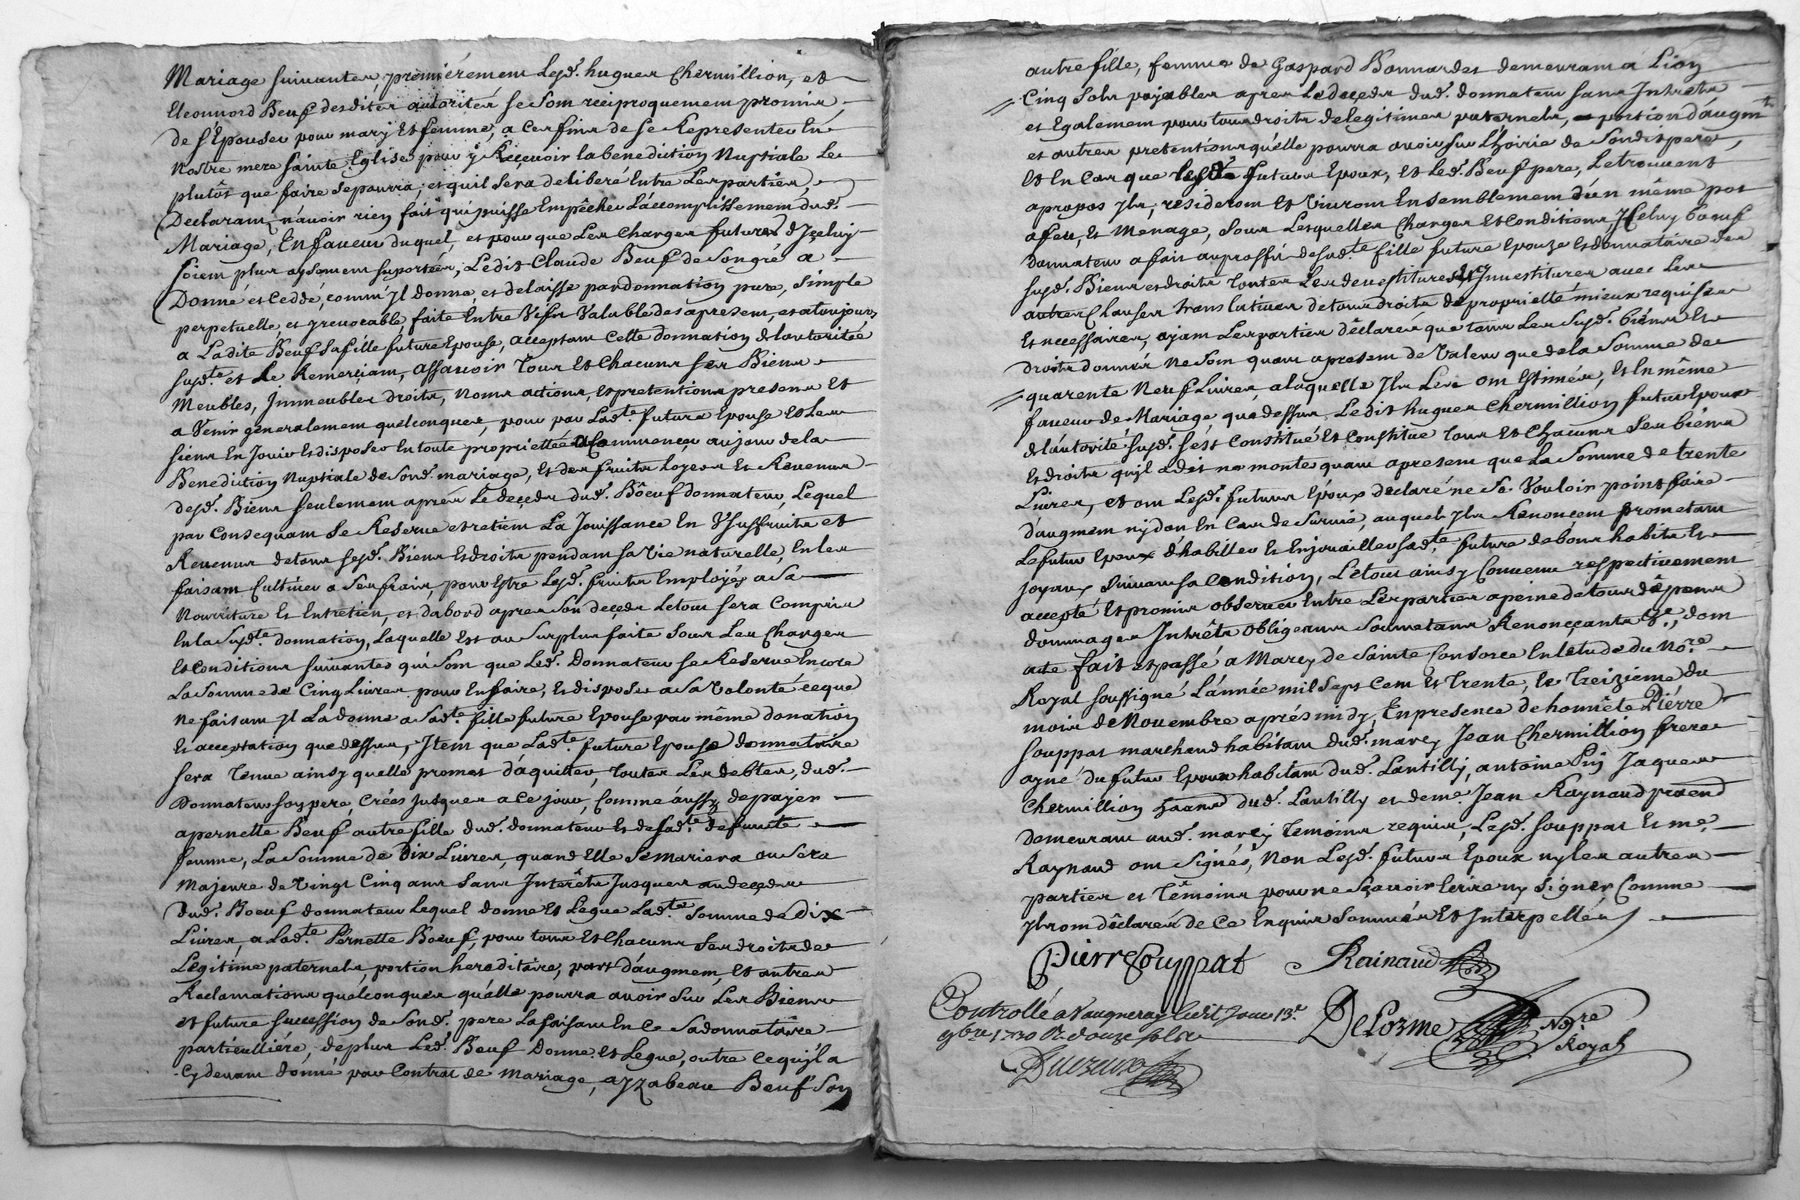 Mariage suivanter, premiérement Lesd. hugues Chermillion, et
Eleonnord Beuf desdites autorités se som reciproquemem promis,
de s'Epouser pour mary Et femme, a ces fins de se Representer En
Nostre mere sainte Eglise pour y Recevoir la benediction Nuptiale Le
plutôt que faire se pourra, et quil sera deliberé Entre Les parties,
Declaram, n'avoir rien fait qui puisse Empêcher L'accomplissemem dud.
Mariage, En faveur duquel, et pour que Les Charges futures d'Iceluy
soiem plus aysemem suportées, Ledit Claude Beuf de son gré a
Donné et Ceddé, comm'Jl donne, et delaisse par donnation pure, simple
perpetuelle, et yrevocable, faite Entre Vifs Valuable des apresem, et a toujours
a Ladite Beuf sa fille future Epouse, acceptam Cette donnation de l'autoritée
susd.te et Le Remerciam, assavoir Tous Et Chacuns ses Biens
Meubles, Jmmeubles droits, Noms actions, Et pretentions presens Et
a Venir generalement quelconques, pour par Lad.te future Epouse Et Les
siens En Jouir Et disposer En toute proprietée a Commencer au jour de la
Benediction Nuptiale de Sond. mariage, Et des fruits Loyers Et Revenus
desd. Biens seulemem aprés Le deçeds dud. Bôeuf donnateur, Lequel
par Consequam se Reserve et retiem La Jouissance En Usuffruits et
Revenus de tous sesd. Biens Et droits pendam sa vie naturelle, En les
faisam Cultiver a ses frais, pour Estre Lesd. fruits Employés a sa
Nourriture Et Entretien, et d'abord apres son deçeds Le tout sera Compris
En la susd.te donnation, Laquelle Est au surplus faite sous Les Charges
Et Conditions suivantes qui som que Led. Donnateur se Reserve Encore
La somme de Cinq Livres pour En faire, Et disposer a sa Volonté ce que
Ne faisam Jl La donne a Sad.te fille future Epouse par même donation
Et acceptation que dessus, Jtem que Lad.te future Epouse donnataire
sera Tenue ainsy quelle promet d'aquitter, toutes Les debtes, dud.
Donnateur son pere Créés Jusques a Ce jour, Comme aussy de payer
a pernette Beuf autre fille dud. donnateur Et de sad.te deffunte
femme, La somme de Dix Livres, quand Elle se mariera ou sera
majeure de Vingt Cinq ans sans Interêts Jusques au deçeds
dud. Boeuf donnateur Lequel donne Et Legue Lad.te Somme de Dix
Livres, a Lad.te Pernette Boeuf, pour tous Et Chacuns Ses droits de
Legitime paternels, portion hereditaire, part d'augmem, Et autres
Reclamations quelconques qu'elle pourra avoir sur Les Biens
et future succession de Sond. pere La faisam En Ce sa donnataire
particulliére, de plus Led. Beuf Donne et Legue, outre ce qu'jl a
Cy devam donné par Contrat de mariage, a yzabeau Beuf son
autre fille, femme de Gaspard Bonnardet demeuram a Lion
Cinq Sols payables apres Le deçeds dud. donnateur sans Intrets
et Egalemem pour tous droits de legitimes paternels, portion d'augmt
et autres pretentions qu'elle pourra avoir sur L'hoirie de Sondit pere,
Et En Cas que lesd. futurs Epoux, et Led. Beuf pere, Le trouvent
a propos Jls, resideront Et Vivront Ensemblemem d'un même pot
a feu, Et menage, sous Lesquelles Charges Et Conditions Jceluy boeuf
donnateur a fait au proffit de sad.te fille future Epouze Et donnataire des
susd. Biens et droits toutes Les devestitures et Jnvestitures avec Les
autres Clauses translatives de tous droits de proprieté mieux requises
Et necessaires, ayam Les parties déclaré que tous Les susd. biens Et
droits donnés ne som quam apresem de Valeur que de la somme de
quarente Neuf Livres, a laquelle Jls Les om Estimés, Et En même
faveur de Mariage que dessus, Ledit hugues Chermillion futur Epoux
de l'autorité susd. s'est Constitué Et Constitue Tous Et Chacuns ses biens
Et droits qu'jl a dit ne monter quam apresem que La somme de trente
Livres, et om Lesd. futurs Epoux declaré ne se Vouloir point faire
d'augmem ny don En Cas de Survie, auquel Jls Renoncem prometam
Le futur Epoux d'habiller Et Enjouailler sad.te future de bons habits Et
joyaux suivam sa Condition, Le tout ainsy Convenu respectivemem
accepté Et promis observer Entre Les parties a peine de tous dépens
dommages Intrêts obligeans soumetans Renonçants &e, dom
acte fait et passé a Marcy de Sainte Consorce En létude du No.re
Royal soussigné L'année mil Sept Cem Et Trente, Le Treizieme du
mois de Novembre aprés midy, En presence de honnête Piérre
souppat marchand habitam dud. marcy Jean Chermillion frere
ayné du futur Epoux habitam dud. Lantilly, antoine Puy Jaques
Chermillion dud. Lantilly et deme. Jean Raynaud praend
demeuram aud. marcy Temoins requis, Lesd. souppat Et me.
Raynaud om Signés, Non Lesd. futurs Epoux ny les autres
parties et Têmoins pour ne sçavoir Ecrire ny signer Comme
Jls om déclarés de Ce Enquis Sommés Et Interpellés
Pierre Souppat Rainaud
Controllé a Vaugneray Led.t Jour 13.e
9bre 1730 R. douze sols
Delorme No.re
Royal